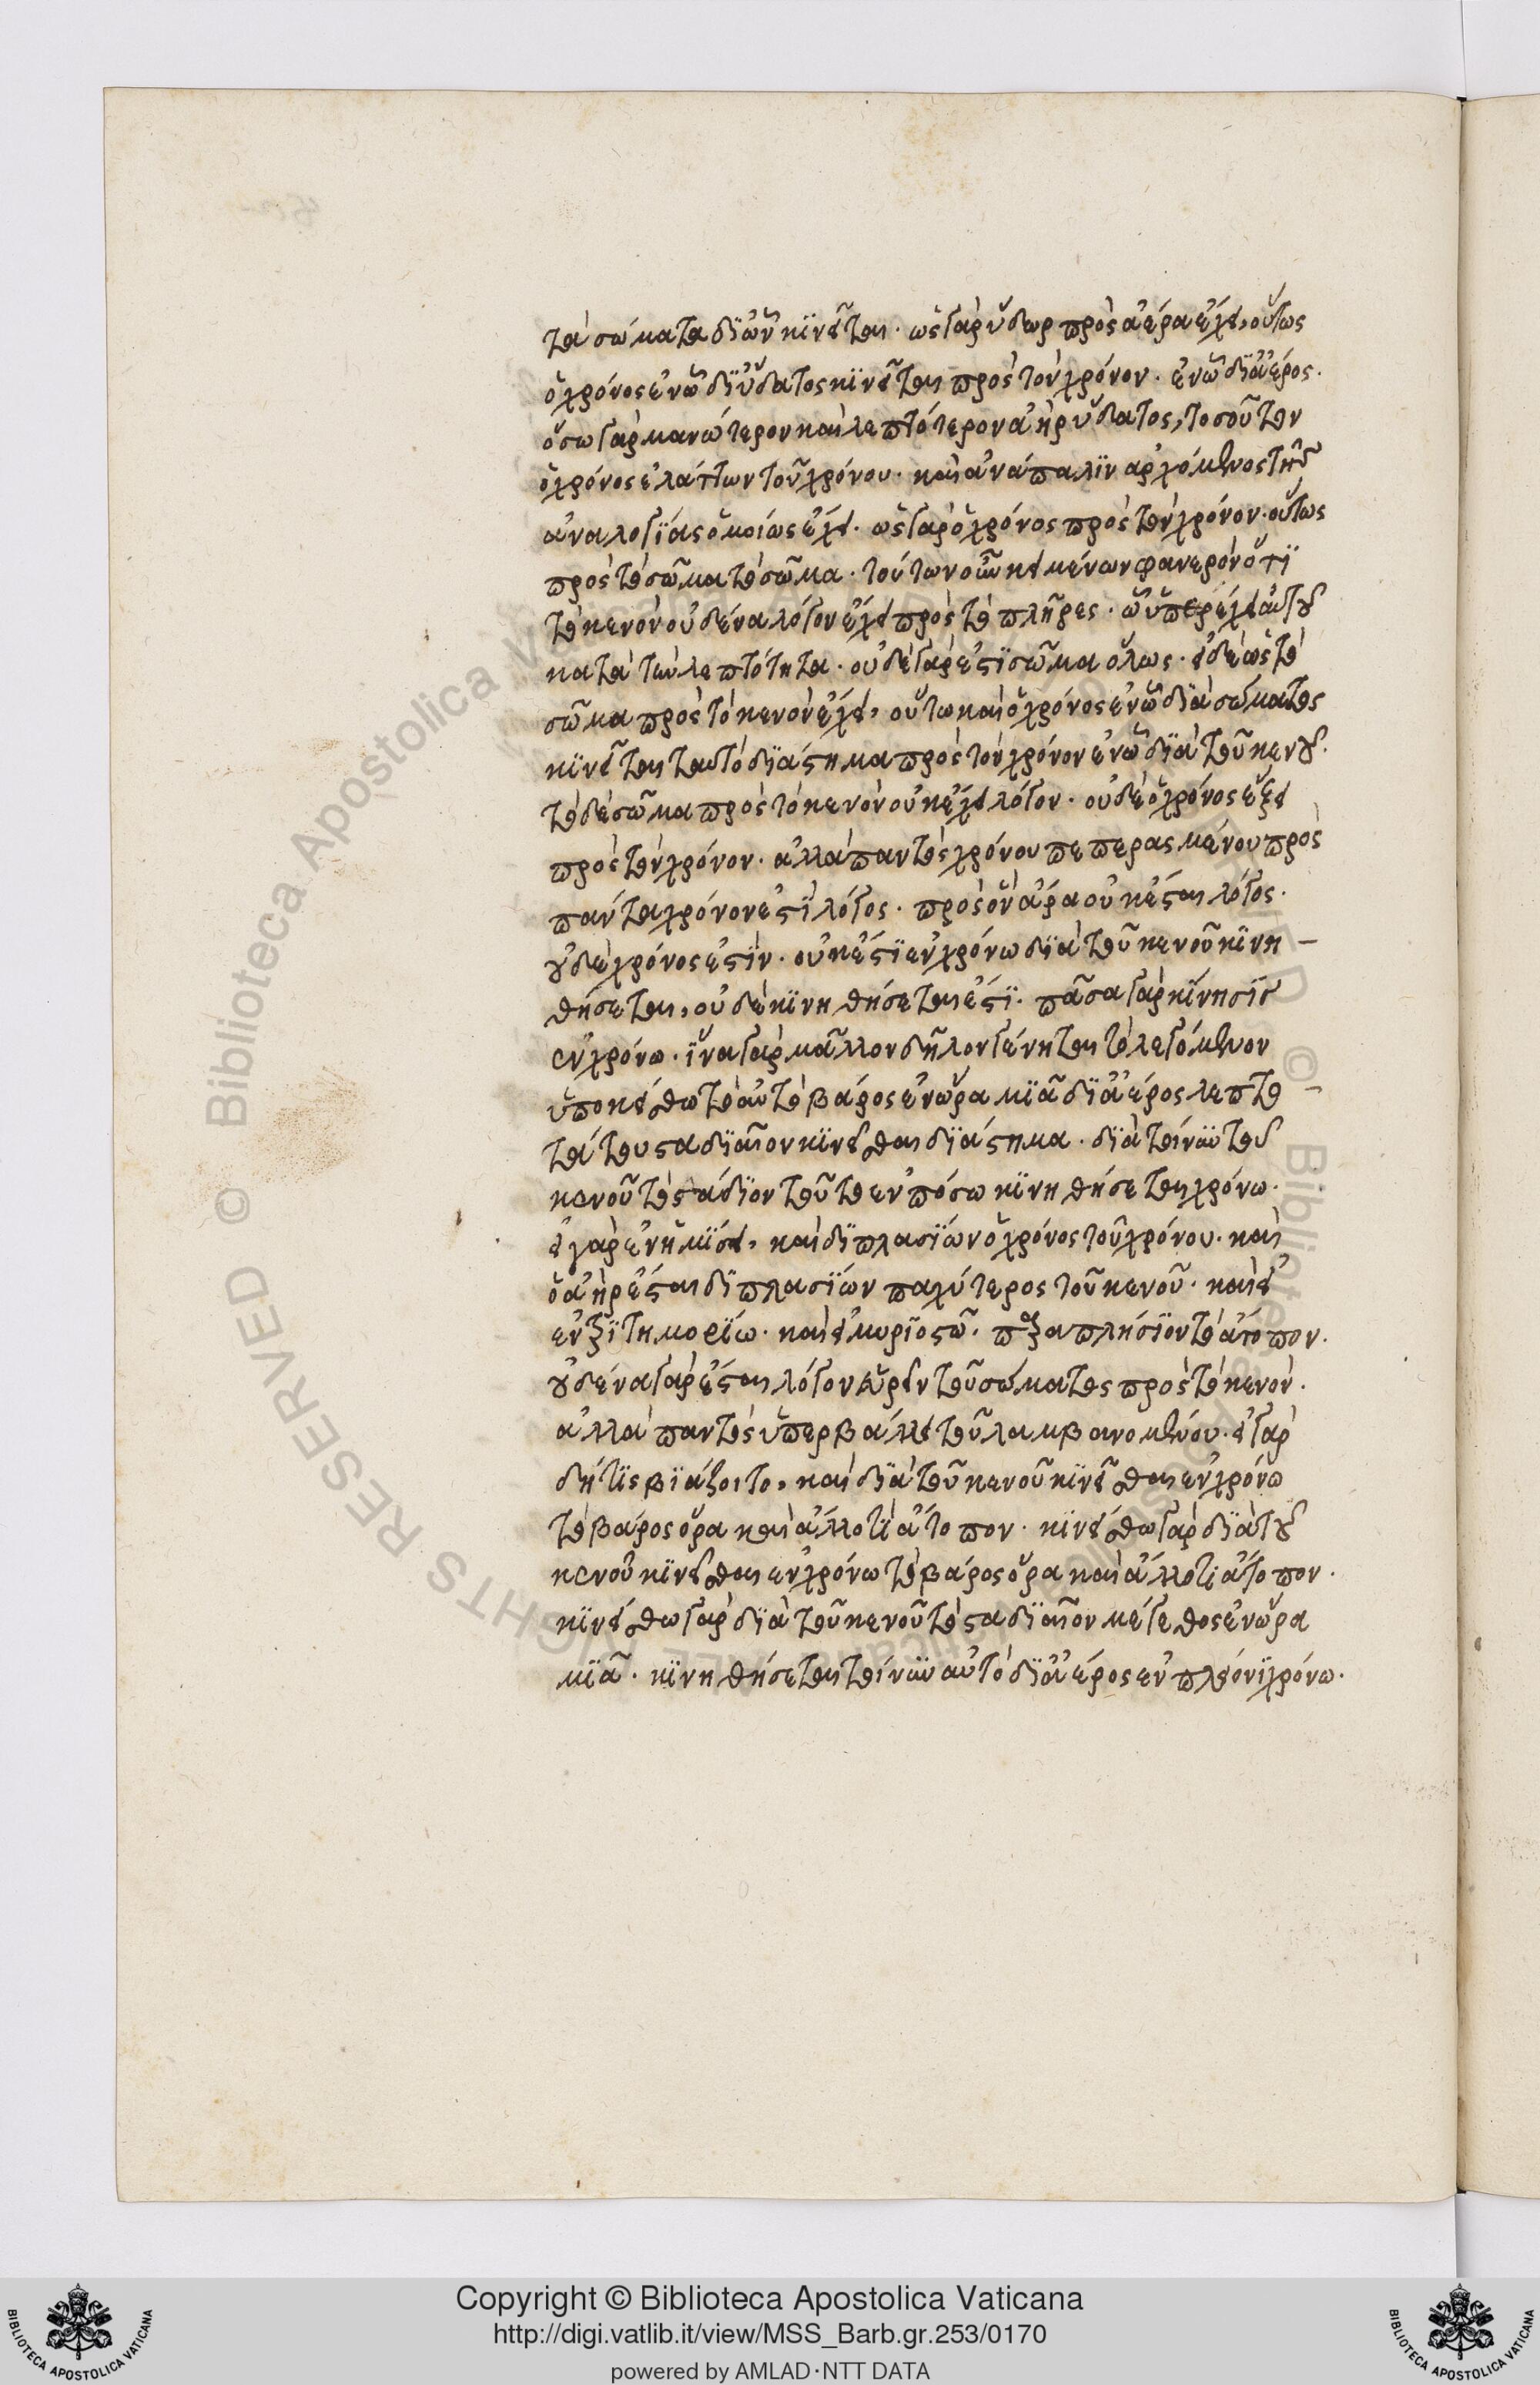 τὰ σώματα δι ὧν κινεῖται· ὡς γὰρ ὕδωρ πρὸς ἀέρα ἔχει, οὕτως
ὁ χρόνος ἐν ᾧ δι ὕδατος κινεῖται πρὸς τὸν χρόνον· ἐν ᾧ δι ἀέρος·
ὅσω γὰρ μανώτερον καὶ λεπτότερον ἀὴρ ὕδατος, τοσοῦτον
ὁ χρόνος ἐλάττων τοῦ χρόνου· καὶ ἀνάπαλιν ἀρχόμενος τῆς
ἀναλογίας ὁμοίως ἔχει· ὡς γὰρ ὁ χρόνος πρὸς τὸν χρόνον· οὕτως
πρὸς τὸ σῶμα τὸ σῶμα· τούτων οὖν κειμένων φανερὸν ὅτι
τὸ κενὸν οὐδένα λόγον ἔχει πρὸς τὸ πλῆρες· ᾧ ὑπερέχει αὐτοῦ
κατὰ τὴν λεπτότητα· οὐδὲ γάρ ἐστι σῶμα ὅλως· εἰ δὲ ὡς τὸ
σῶμα πρὸς τὸ κενὸν ἔχει, οὕτω καὶ ὁ χρόνος ἐν ᾧ διὰ σώματος
κινεῖται ταυτὸ διάστημα πρὸς τὸν χρόνον ἐν ᾧ διὰ τοῦ κενοῦ·
τὸ δὲ σῶμα πρὸς τὸ κενὸν οὐκ ἔχει λόγον· οὐδὲ ὁ χρόνος ἕξει
πρὸς τὸν χρόνον· ἀλλὰ παντὸς χρόνου πεπερασμένου πρὸς
πάντα χρόνον ἐστὶ λόγος· πρὸς ὃν ἄρα οὐκ ἔσται λόγος·
οὐδὲ χρόνος ἐστίν· οὐκ ἔστι ἐν χρόνω διὰ τοῦ κενοῦ κινη–
θήσεται, οὐδὲ κινηθήσεται ἔστι· πᾶσα γὰρ κίνησις
ἐν χρόνω· ἵνα γὰρ μᾶλλον δῆλον γένηται τὸ λεγόμενον
ὑποκείσθω τὸ αὐτὸ βάρος ἐν ὥρα μιᾶ δι ἀέρος λεπτο–
τάτου σταδιαῖον κινεῖσθαι διάστημα· διὰ τοίνυν τοῦ
κενοῦ τὸ στάδιον τοῦτο ἐν πόσω κινηθήσεται χρόνω·
εἰ γὰρ ἐν ἡμίσει, καὶ διπλασίων ὁ χρόνος τοῦ χρόνου· καὶ
ὁ ἀὴρ ἔσται διπλασίων παχύτερος τοῦ κενοῦ· καὶ εἰ
ἐν ξιτημορίω· καὶ εἰ μυριοστῶ· παραπλήσιον τὸ ἄτοπον·
οὐδένα γὰρ ἔσται λόγον εὑρεῖν τοῦ σώματος πρὸς τὸ κενὸν·
ἀλλὰ παντὸς ὑπερβάλλει τοῦ λαμβανομένου· εἰ γὰρ
δή τις βιάζοιτο, καὶ διὰ τοῦ κενοῦ κινεῖσθαι ἐν χρόνω
τὸ βάρος ὅρα καὶ ἄλλο τι ἄτοπον· κινείσθω γὰρ διὰ τοῦ
κενοῦ κινεῖσθαι ἐν χρόνω τὸ βάρος ὅρα καὶ ἄλλο τι ἄτοπον·
κινείσθω γὰρ διὰ τοῦ κενοῦ τὸ σταδιαῖον μέγεθος ἐν ὥρα
μιᾶ· κινηθήσεται τοίνυν αὐτὸ δι ἀέρος ἐν πλείονι χρόνω·
Copyright © Biblioteca Apostolica Vaticana
http://digi.vatlib.it/view/MSS_Barb.gr.253/0170
powered by AMLAD·NTT DATA